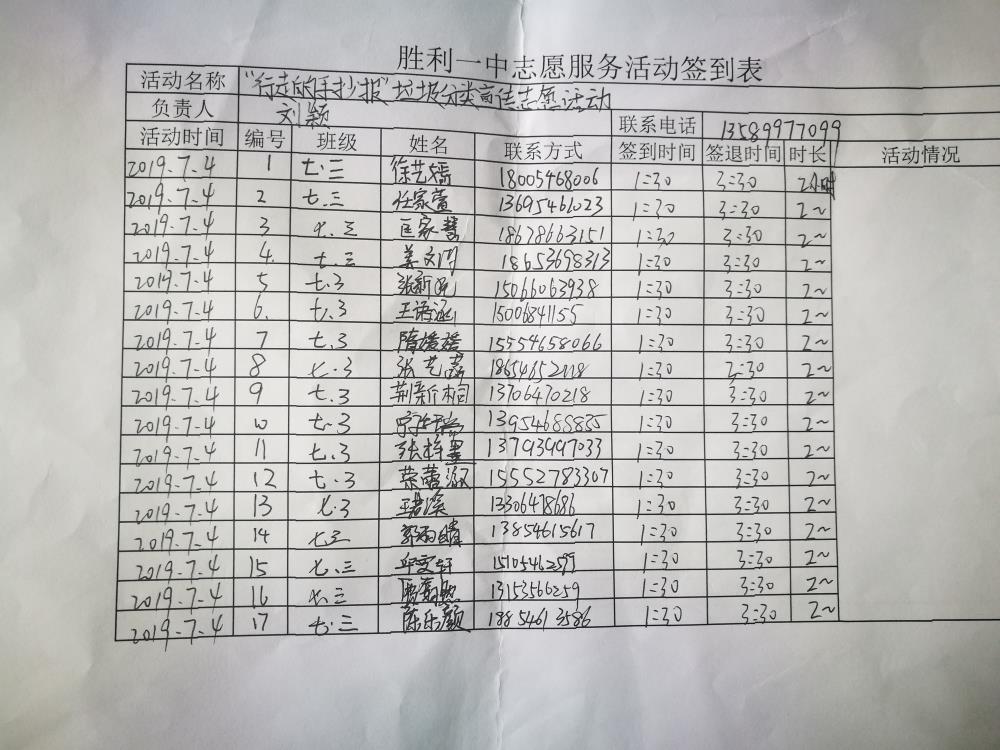 胜利一中志愿服务活动签到表
活动名称 "行走的手抄报"垃圾分类宣传志愿活动
负责人 刘颖 联系电话 13589977099
活动时间 编号 班级 姓名 联系方式 签到时间 签退时间 时长 活动情况
2019.7.4 1 七.三 徐艺嫣 18005468006 1:30 3:30 2小时
2019.7.4 2 七.三 任家萱 13695461023 1:30 3:30 2~
2019.7.4 3 七.三 匡家慧 18678663151 1:30 3:30 2~
2019.7.4 4. 七.三 姜文 18653698313 1:30 3:30 2~
2019.7.4 5 七.3 张新 15066063938 1:30 3:30 2~
2019.7.4 6. 七.3 王语涵 15006841155 1:30 3:30 2~
2019.7.4 7 七.3 隋媛媛 15554658066 1:30 3:30 2~
2019.7.4 8 七.3 张艺 1:30 3:30 2~
2019.7.4 9 七.3 荆新桐 13706470218 1:30 3:30 2~
2019.7.4 10 七.3 13954688885 1:30 3:30 2~
2019.7.4 11 七.3 张梓墨 13793997033 1:30 3:30 2~
2019.7.4 12 七.3 荣蕾 15552783307 1:30 3:30 2~
2019.7.4 13 七.3 13306478686 1:30 3:30 2~
2019.7.4 14 七.三 郭雨晴 13854615617 1:30 3:30 2~
2019.7.4 15 七.三 15105462599 1:30 3:30 2~
2019.7.4 16 七.三 13153566259 1:30 3:30 2~
2019.7.4 17 七.三 陈乐颜 18854613586 1:30 3:30 2~